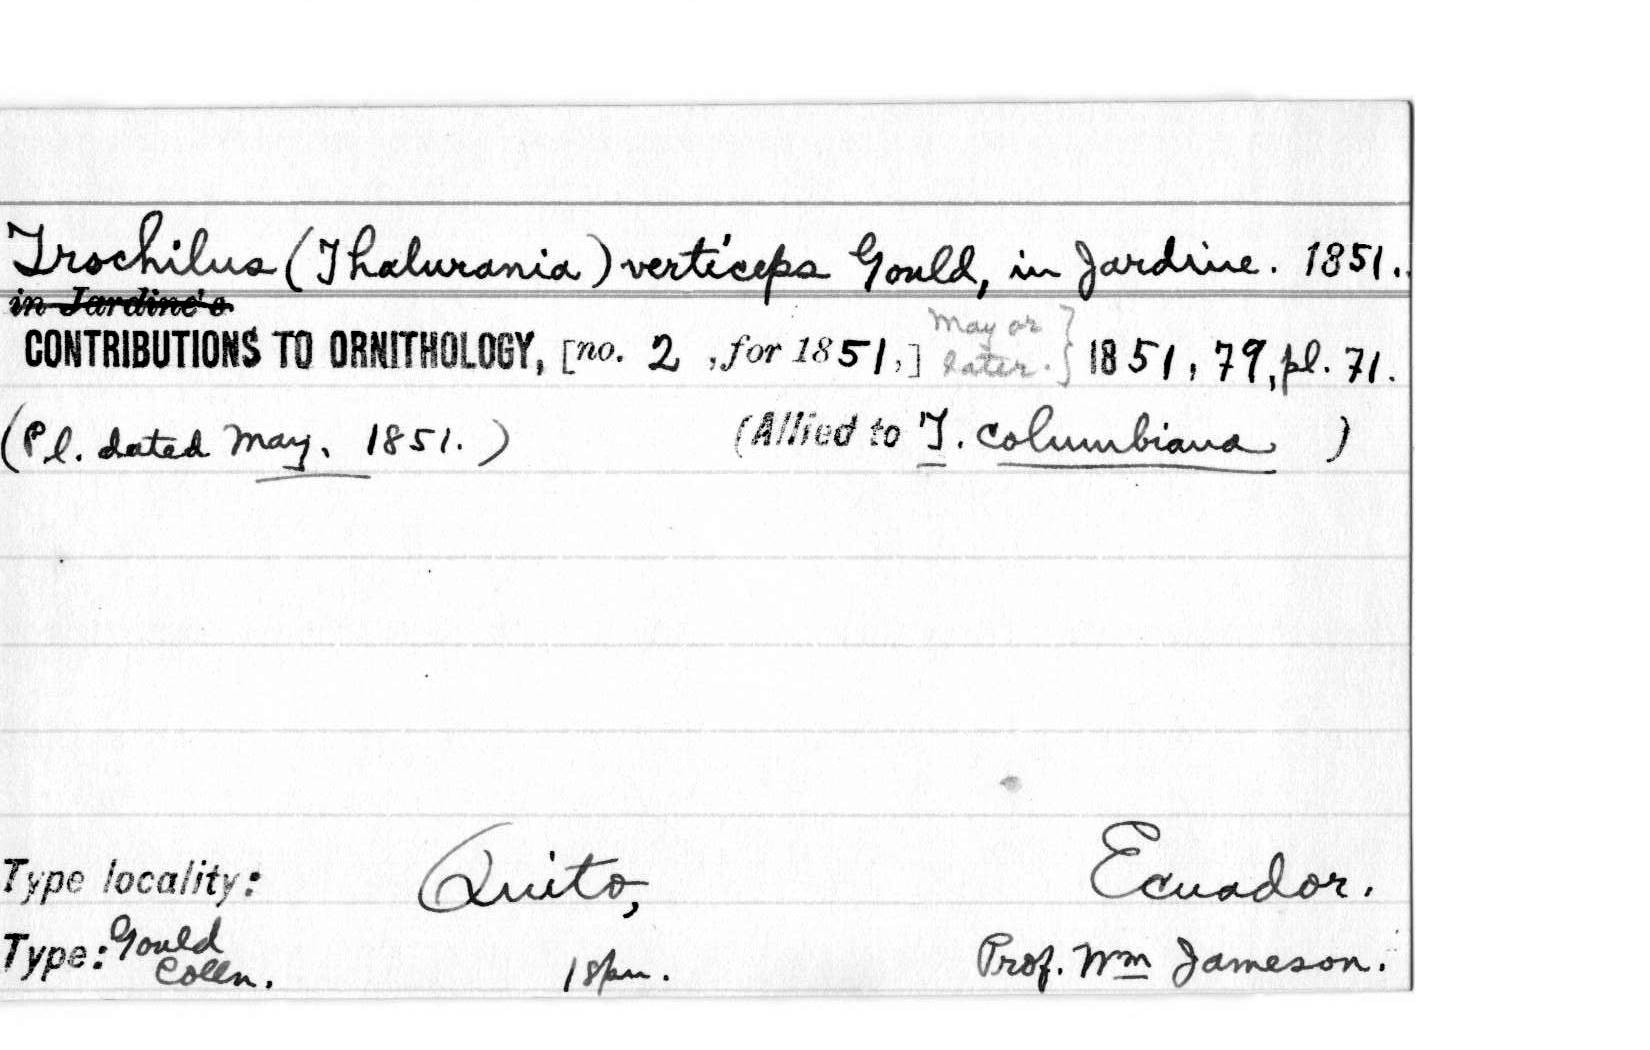 Trochilus (Thalurania) verticeps Gould, in Jardine. 1851.
in Jardine's
CONTRIBUTIONS TO ORNITHOLOGY, [no. 2 , for 1851,] May or later. } 1851, 79, pl. 71.
(Pl. dated May, 1851.) (Allied to T. columbiana )
Type locality: Quito, Ecuador.
Type: Gould Colln. 1 spm. Prof. Wm Jameson.